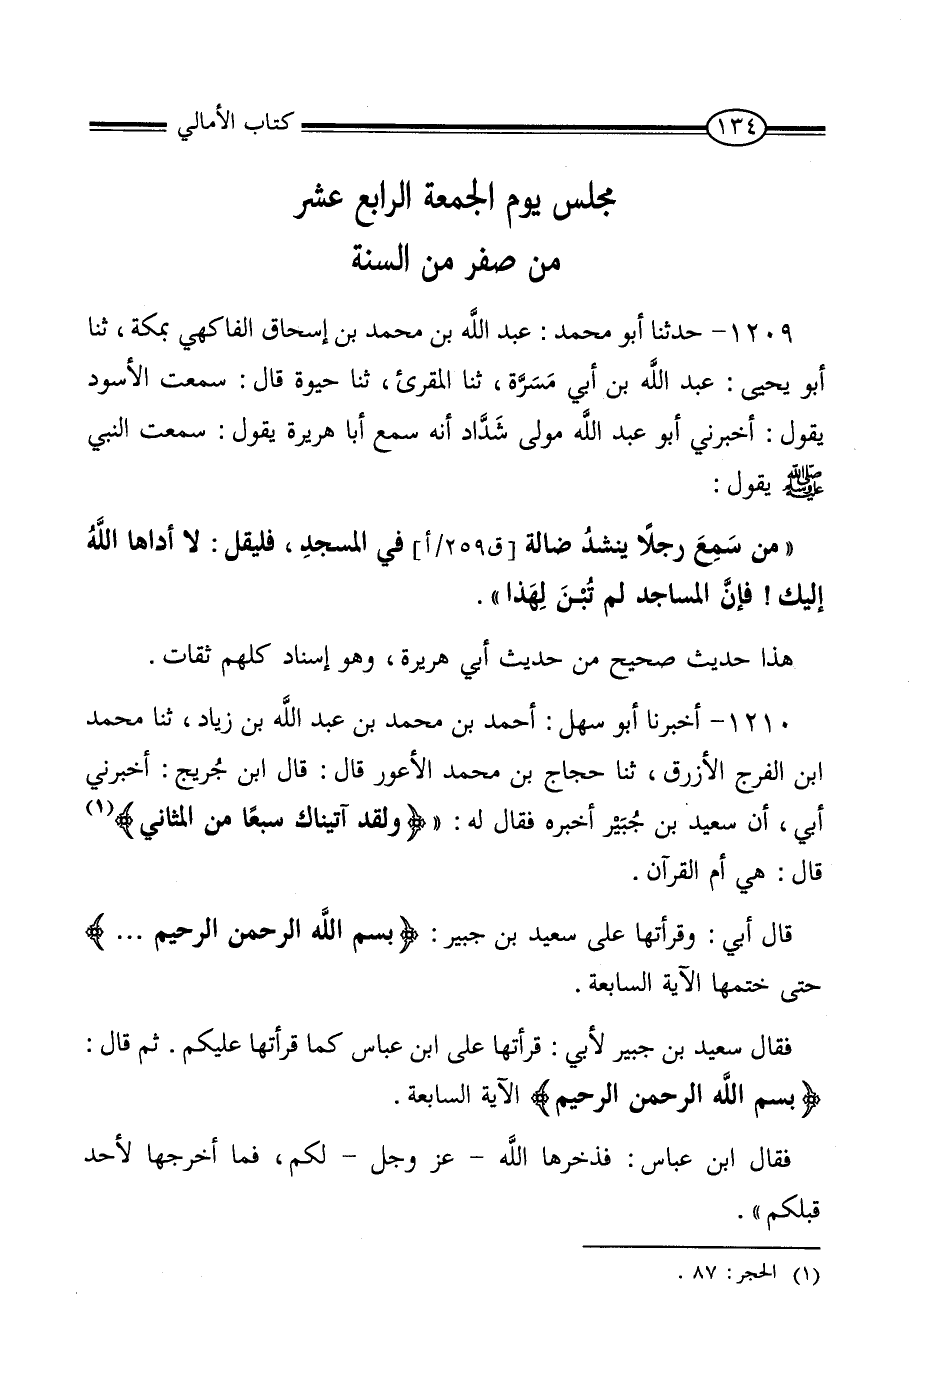 ١٣٤ كتاب الأمالي
مجلس يوم الجمعة الرابع عشر
من صفر من السنة
١٢٠٩- حدثنا أبو محمد : عبد اللَّه بن محمد بن إسحاق الفاكهي بمكة ، ثنا
أبو يحيى : عبد اللَّه بن أبي مَسَرَّة ، ثنا المقرئ ، ثنا حيوة قال : سمعت الأسود
يقول : أخبرني أبو عبد اللَّه مولى شَدَّاد أنه سمع أبا هريرة يقول : سمعت النبي
ﷺ يقول :
« من سَمِعَ رجلًا ينشدُ ضالة [ق٢٥٩/أ] في المسجدِ ، فليقل : لا أداها اللَّهُ
إليك ! فإنَّ المساجد لم تُبْنَ لِهَذا » .
هذا حديث صحيح من حديث أبي هريرة ، وهو إسناد كلهم ثقات .
١٢١٠- أخبرنا أبو سهل : أحمد بن محمد بن عبد اللَّه بن زياد ، ثنا محمد
ابن الفرج الأزرق ، ثنا حجاج بن محمد الأعور قال : قال ابن جُريج : أخبرني
أبي ، أن سعيد بن جُبَيْر أخبره فقال له : « ﴿ولقد آتيناك سبعًا من المثاني﴾(١)
قال : هي أم القرآن .
قال أبي : وقرأتها على سعيد بن جبير : ﴿بسم اللَّه الرحمن الرحيم ... ﴾
حتى ختمها الآية السابعة .
فقال سعيد بن جبير لأبي : قرأتها على ابن عباس كما قرأتها عليكم . ثم قال :
﴿بسم اللَّه الرحمن الرحيم﴾ الآية السابعة .
فقال ابن عباس : فذخرها اللَّه – عز وجل – لكم ، فما أخرجها لأحد
قبلكم » .
(١) الحجر : ٨٧ .